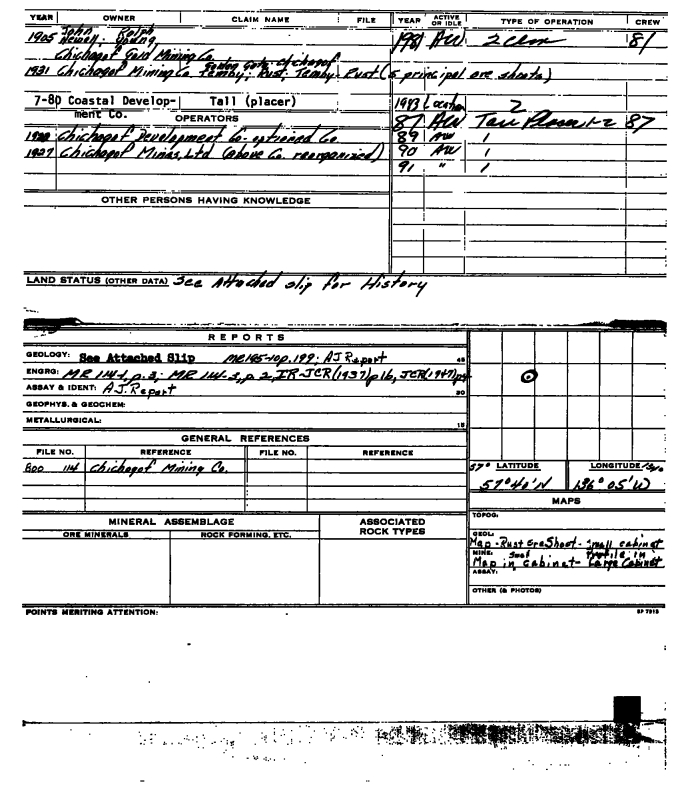 YEAR OWNER CLAIM NAME FILE YEAR ACTIVE OR IDLE TYPE OF OPERATION CREW
1905 John Newell, Ralph Young 1981 AW 2 clm 81
Chichagof Gold Mining Co.
1931 Chichagof Mining Co. Golden Gate, Chichagof Temby, Rust, Temby Rust (5 principal ore shoots)
7-80 Coastal Develop- Tall (placer)
ment Co.
1983 Location 2
OPERATORS
87 AW 87
1920 Chichagof Development Co. optioned Co. 89 AW 1
1927 Chichagof Mines, Ltd (above Co. reorganized) 90 AW 1
91 " 1
OTHER PERSONS HAVING KNOWLEDGE
LAND STATUS (OTHER DATA) See Attached slip for History
REPORTS
GEOLOGY: See Attached Slip MR195-10p.199; AJ Report 45
ENGRG: MR 114-1, p.3; MR 114-3, p 2, IR-JCR(1937) p16, JCR(1947)p4
ASSAY & IDENT: A.J. Report 30
GEOPHYS. & GEOCHEM:
METALLURGICAL: 15
GENERAL REFERENCES
FILE NO. REFERENCE FILE NO. REFERENCE
114 Chichagof Mining Co.
57° LATITUDE LONGITUDE
57°40'N 136°05'W
MAPS
TOPOG:
MINERAL ASSEMBLAGE ASSOCIATED ROCK TYPES
ORE MINERALS ROCK FORMING, ETC.
GEOL:
Map - Rust Ore Shoot - Small cabinet
MINE:
Map in Small cabinet - Profile in Large Cabinet
ASSAY:
OTHER (& PHOTOS)
POINTS MERITING ATTENTION: SP 7913